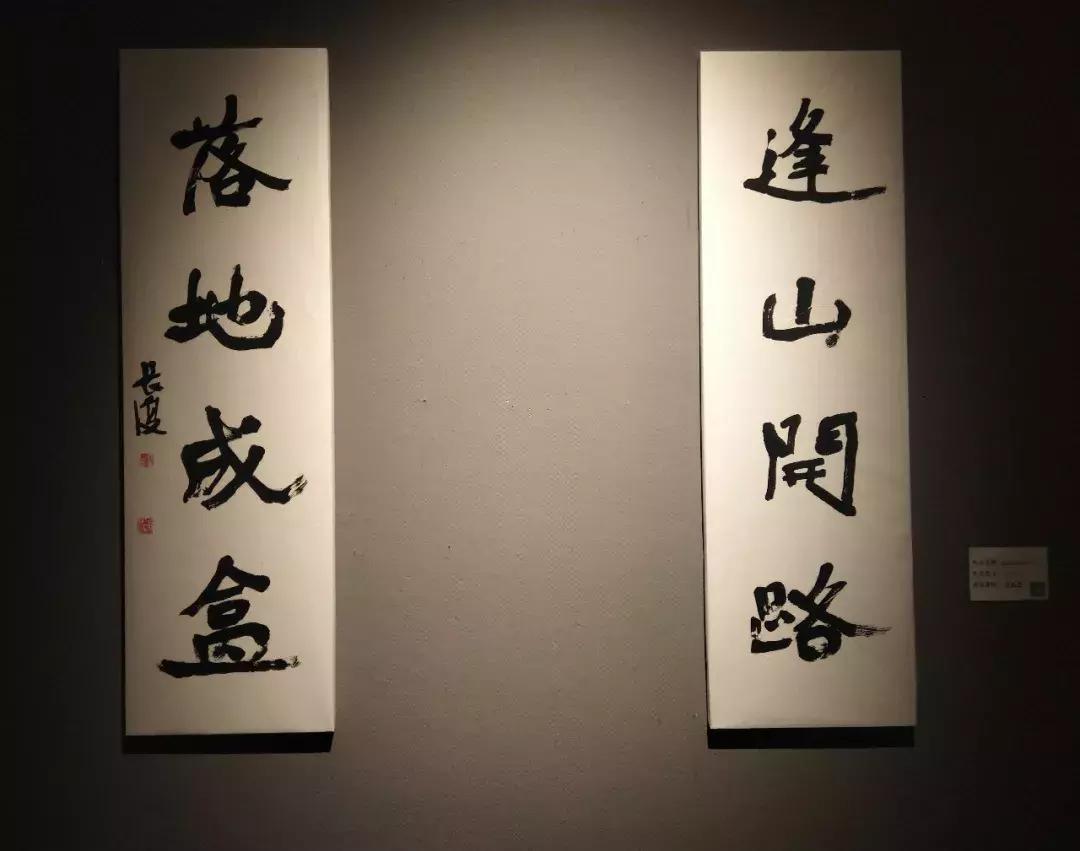 逢山開路
落地成盒
長